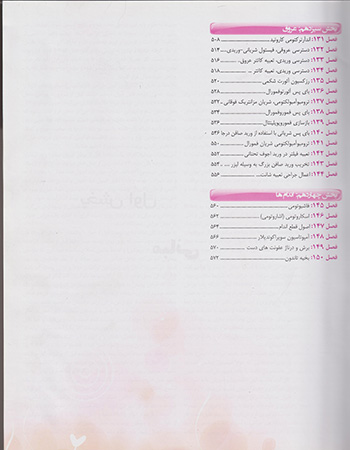 بخش سیزدهم: عروق
فصل ۱۳۱: اندارترکتومی کاروتید ... ۵۰۸
فصل ۱۳۲: دسترسی عروقی، فیستول شریانی-وریدی... ۵۱۴
فصل ۱۳۳: دسترسی وریدی، تعبیه کاتتر عروق... ۵۱۶
فصل ۱۳۴: دسترسی وریدی، تعبیه کاتتر ... ۵۱۸
فصل ۱۳۵: رزکسیون آئورت شکمی ... ۵۲۰
فصل ۱۳۶: بای پس آئورتوفمورال ... ۵۲۸
فصل ۱۳۷: ترومبوآمبولکتومی، شریان مزانتریک فوقانی .. ۵۳۲
فصل ۱۳۸: بای پس فموروفمورال ... ۵۳۴
فصل ۱۳۹: بازسازی فموروپوپلیتئال ... ۵۳۶
فصل ۱۴۰: بای پس شریانی با استفاده از ورید صافن درجا ۵۴۶
فصل ۱۴۱: ترومبوآمبولکتومی شریان فمورال ... ۵۵۰
فصل ۱۴۲: تعبیه فیلتر در ورید اجوف تحتانی ... ۵۵۲
فصل ۱۴۳: تخریب ورید صافن بزرگ به وسیله لیزر ... ۵۵۴
فصل ۱۴۴: اعمال جراحی تعبیه شانت... ۵۵۶
بخش چهاردهم: اندام‌ها
فصل ۱۴۵: فاشیوتومی ... ۵۶۰
فصل ۱۴۶: اسکاروتومی (اشاروتومی) ... ۵۶۲
فصل ۱۴۷: اصول قطع اندام ... ۵۶۴
فصل ۱۴۸: آمپوتاسیون سوپراکوندیلار ... ۵۶۶
فصل ۱۴۹: برش و درناژ عفونت های دست ... ۵۷۰
فصل ۱۵۰: بخیه تاندون ... ۵۷۲